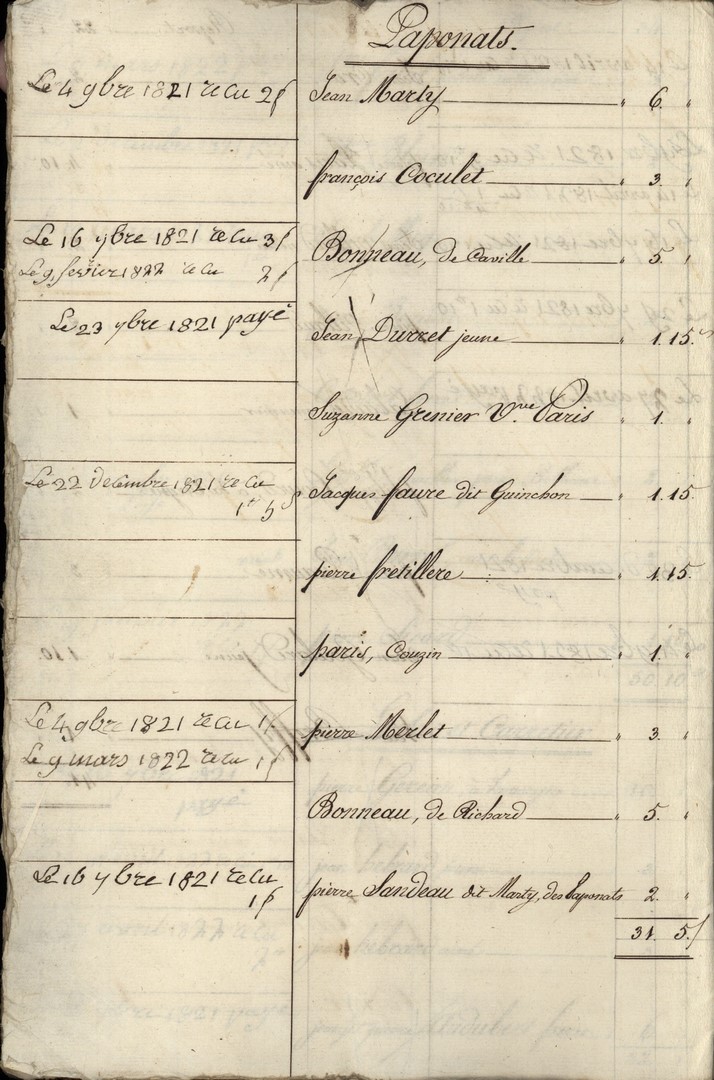 Paponats.
Le 4 9bre 1821 recu 2f Jean Marty " 6. "
françois Coculet " 3. "
Le 16 9bre 1821 recu 3f
Le 9 fevrier 1822 recu 2f Bonneau, de Caville " 5. "
Le 23 9bre 1821 payé Jean Durret jeune " 1. 15.
Suzanne Grenier Vve. Paris " 1. "
Le 22 decembre 1821 recu
1tt 5s Jacques faure dit Guinchon " 1. 15.
pierre fretillere " 1. 15.
paris, Couzin " 1. "
Le 4 9bre 1821 recu 1f pierre Merlet " 3. "
Le 9 mars 1822 recu 1f
Bonneau, de Richard " 5. "
Le 16 9bre 1821 recu
1f pierre Sandeau dit Marty, des Paponats 2. "
31. 5f